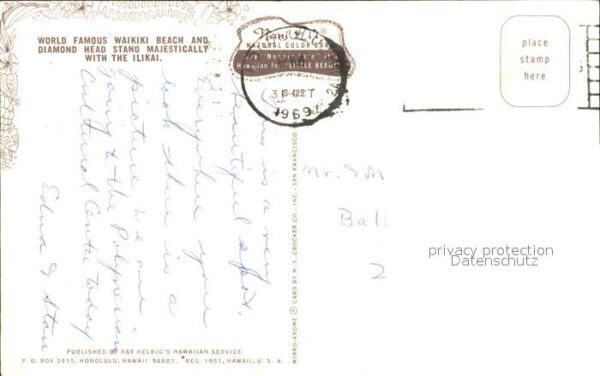 WORLD FAMOUS WAIKIKI BEACH AND
DIAMOND HEAD STAND MAJESTICALLY
WITH THE ILIKAI.
This is a very
beautiful spot.
Everywhere you
look there is a
picture. We are
going to the Polynesian
Cultural Center today
Edna & Stan
PUBLISHED BY RAY HELBIG'S HAWAIIAN SERVICE
P. O. BOX 2835, HONOLULU, HAWAII 96803. REG. 1951, HAWAII, U. S. A.
MIRRO-KROME ® CARD BY H. S. CROCKER CO., INC., SAN FRANCISCO
Nani Li'i
NATURAL COLOR CARD
Hawaiian for "LITTLE BEAUTY"
OCT
1969
place
stamp
here
Mr. & M
Bal
2
privacy protection
Datenschutz